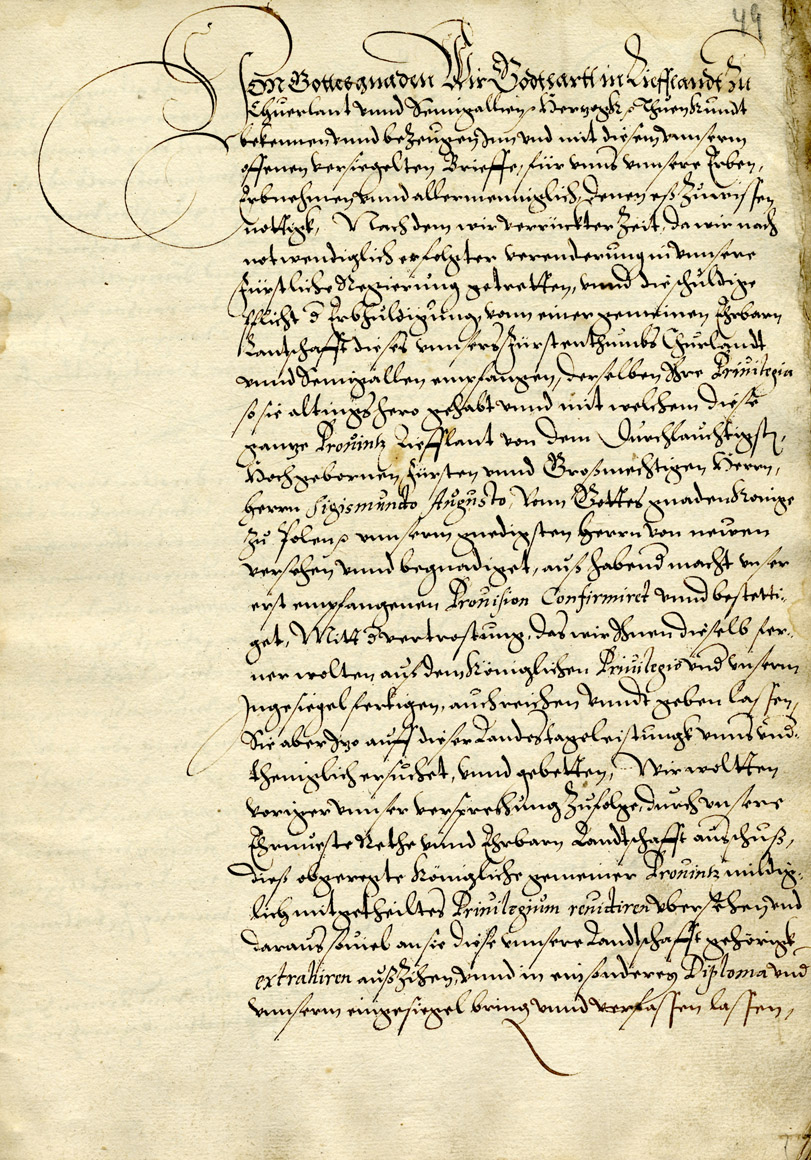 49
Von Gottes gnaden Wir Godthartt in Liefflandt zu
Churlant vnnd Semigallien Hertzogk, Thuen kundt
bekennen vnnd bezeugen Inn vnd mit diesem vnnserm
offenen versiegelten Brieffe, für vnns vnnsere Erben,
Erbnehmen vnnd allermenniglich, denen eß zuwissen
nottigk, Nach dem wir verrückter Zeit, da wir nach
notwendiglich erfolgter verenderung in vnnsere
Fürstliche Regierung getretten, vnnd die schuldige
Pflicht d Erbhuldigung, vonn einer gemeinen Ehrbarn
Landtschafft dieses vnnsers Fürstenthumbs Churlandt
vnnd Semigallen empfangen, derselben Ihre Priuilegia
so sie altings hero gehabt vnnd mit welchem diese
gantze Prouintz Liefflant von dem Durchlauchtigst,
Hochgebornen Fürsten vnnd Großmechtigen Herrn,
Herrn Sigismundo Augusto, Vonn Gottes gnaden Konige
zu Polen vnnserm gnedigsten Herrn von newen
versehen vnnd begnadiget, auß habend macht vnser
erst empfangenen Prouision Confirmiret vnnd bestetti-
get, Mitt d vertrostung, das wir Ihnen dieselb fer-
ner wolten auß dem Königlichen Priuilegio vnd vnserm
Ingesiegel fertigen, auch reichen vnndt geben lassen,
Sie aber Itzo auff dieser Landestageleistungk vnns vnd-
theniglich ersuchet, vnnd gebetten, Wir woltten
voriger vnnser versprechung zufolge, durch vnsere
Ehrnueste Rethe vnnd Ehrbarn Landtschafft außschuß,
dieß obgeregte Königliche gemeiner Prouintz mildig-
lich mitgetheiltes Priuilegium reuidiren vbersehen, vnd
daraus souiel an sie diese vnnsere Landtschafft gehörigk
extrahiren außzihen, vnnd in ein sonderes Diploma vnd
vnnserm eingesiegel bring vnnd verfassen lassen,